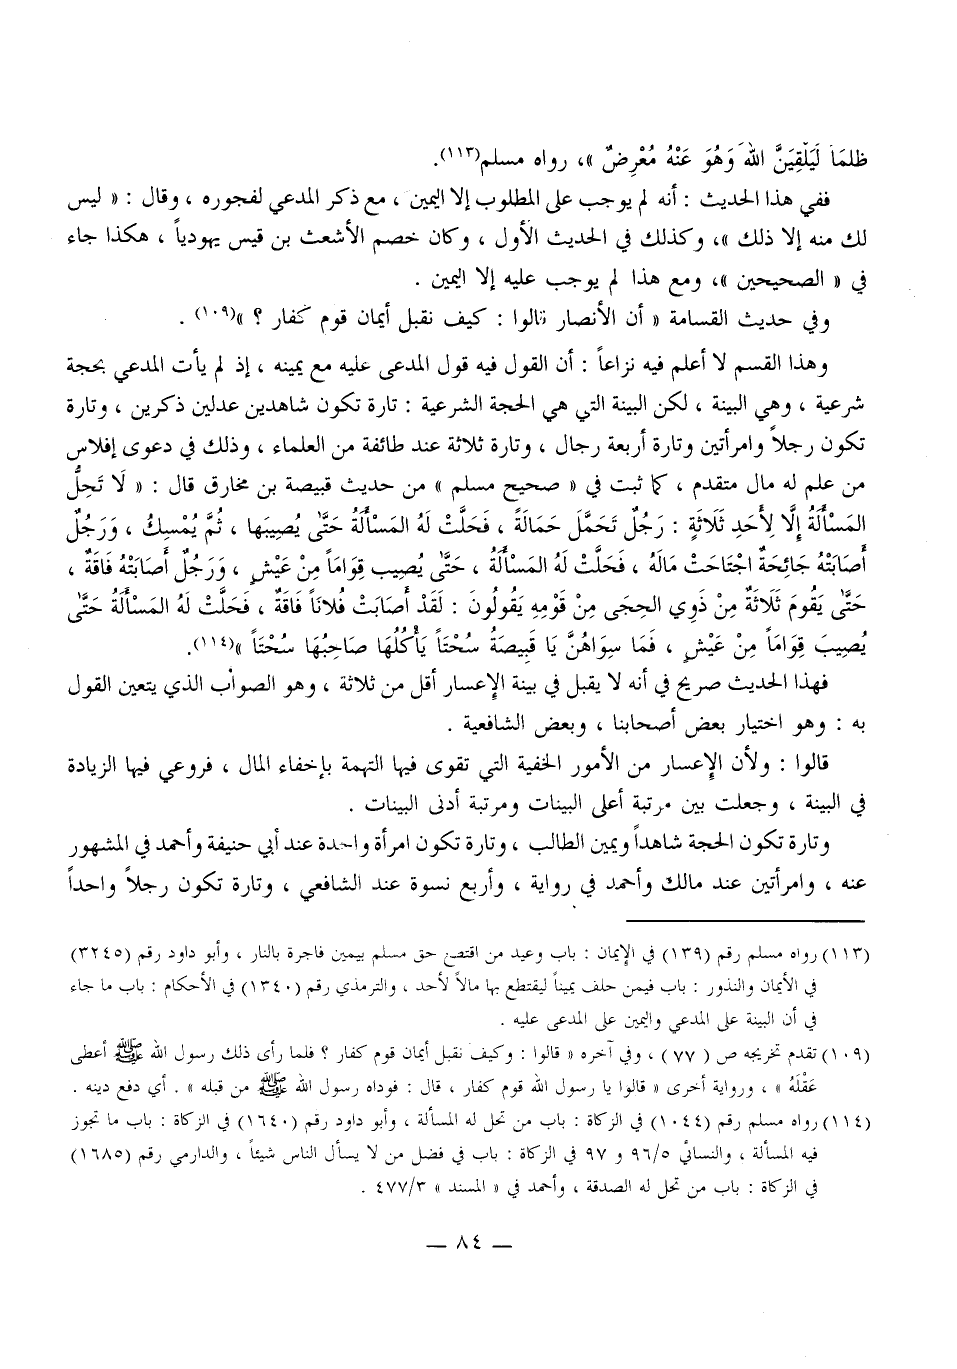 ظلماً لَيَلْقَيَنَّ اللهَ وَهُوَ عَنْهُ مُعْرِضٌ »، رواه مسلم(١١٣).
ففي هذا الحديث : أنه لم يوجب على المطلوب إلا اليمين ، مع ذكر المدعي لفجوره ، وقال : « ليس
لك منه إلا ذلك »، وكذلك في الحديث الأول ، وكان خصم الأشعث بن قيس يهودياً ، هكذا جاء
في « الصحيحين »، ومع هذا لم يوجب عليه إلا اليمين .
وفي حديث القسامة « أن الأنصار قالوا : كيف نقبل أيمان قوم كفار ؟ »(١٠٩) .
وهذا القسم لا أعلم فيه نزاعاً : أن القول فيه قول المدعى عليه مع يمينه ، إذ لم يأت المدعي بحجة
شرعية ، وهي البينة ، لكن البينة التي هي الحجة الشرعية : تارة تكون شاهدين عدلين ذكرين ، وتارة
تكون رجلاً وامرأتين وتارة أربعة رجال ، وتارة ثلاثة عند طائفة من العلماء ، وذلك في دعوى إفلاس
من علم له مال متقدم ، كما ثبت في « صحيح مسلم » من حديث قبيصة بن مخارق قال : « لَا تَحِلُّ
المَسْأَلَةُ إِلَّا لِأَحَدِ ثَلَاثَةٍ : رَجُلٌ تَحَمَّل حَمَالَةً ، فَحَلَّتْ لَهُ المَسْأَلَةُ حَتَّى يُصِيبَها ، ثُمَّ يُمْسِكُ ، وَرَجُلٌ
أَصَابَتْهُ جَائِحَةٌ اجْتَاحَتْ مَالَهُ ، فَحَلَّتْ لَهُ المَسْأَلَةُ ، حَتَّى يُصِيب قِوَاماً مِنْ عَيْشٍ ، وَرَجُل أصَابَتْهُ فَاقَةٌ ،
حَتَّى يَقُومَ ثَلَاثَةٌ مِنْ ذَوِي الحِجَى مِنْ قَوْمِهِ يَقُولُونَ : لَقَدْ أَصَابَتْ فُلَاناً فَاقَةٌ ، فَحَلَّتْ لَهُ المَسْأَلَةُ حَتَّى
يُصِيبَ قِوَاماً مِنْ عَيْشٍ ، فَمَا سِوَاهُنَّ يَا قَبِيصَةُ سُحْتَاً يَأْكُلُهَا صَاحِبُهَا سُحْتَاً »(١١٤).
فهذا الحديث صريح في أنه لا يقبل في بينة الإعسار أقل من ثلاثة ، وهو الصواب الذي يتعين القول
به : وهو اختيار بعض أصحابنا ، وبعض الشافعية .
قالوا : ولأن الإعسار من الأمور الخفية التي تقوى فيها التهمة بإخفاء المال ، فروعي فيها الزيادة
في البينة ، وجعلت بين مرتبة أعلى البينات ومرتبة أدنى البينات .
وتارة تكون الحجة شاهداً ويمين الطالب ، وتارة تكون امرأة واحدة عند أبي حنيفة وأحمد في المشهور
عنه ، وامرأتين عند مالك وأحمد في رواية ، وأربع نسوة عند الشافعي ، وتارة تكون رجلاً واحداً
(١١٣) رواه مسلم رقم (١٣٩) في الإيمان : باب وعيد من اقتطع حق مسلم بيمين فاجرة بالنار ، وأبو داود رقم (٣٢٤٥)
في الأيمان والنذور : باب فيمن حلف يميناً ليقتطع بها مالاً لأحد ، والترمذي رقم (١٣٤٠) في الأحكام : باب ما جاء
في أن البينة على المدعي واليمين على المدعى عليه .
(١٠٩) تقدم تخريجه ص ( ٧٧) ، وفي آخره « قالوا : وكيف نقبل أيمان قوم كفار ؟ فلما رأى ذلك رسول الله ﷺ أعطى
عَقْلَهُ » ، ورواية أخرى « قالوا يا رسول الله قوم كفار ، قال : فوداه رسول الله ﷺ من قبله » . أي دفع دينه .
(١١٤) رواه مسلم رقم (١٠٤٤) في الزكاة : باب من تحل له المسألة ، وأبو داود رقم (١٦٤٠) في الزكاة : باب ما تجوز
فيه المسألة ، والنسائي ٩٦/٥ و ٩٧ في الزكاة : باب في فضل من لا يسأل الناس شيئاً ، والدارمي رقم (١٦٨٥)
في الزكاة : باب من تحل له الصدقة ، وأحمد في « المسند » ٤٧٧/٣ .
— ٨٤ —